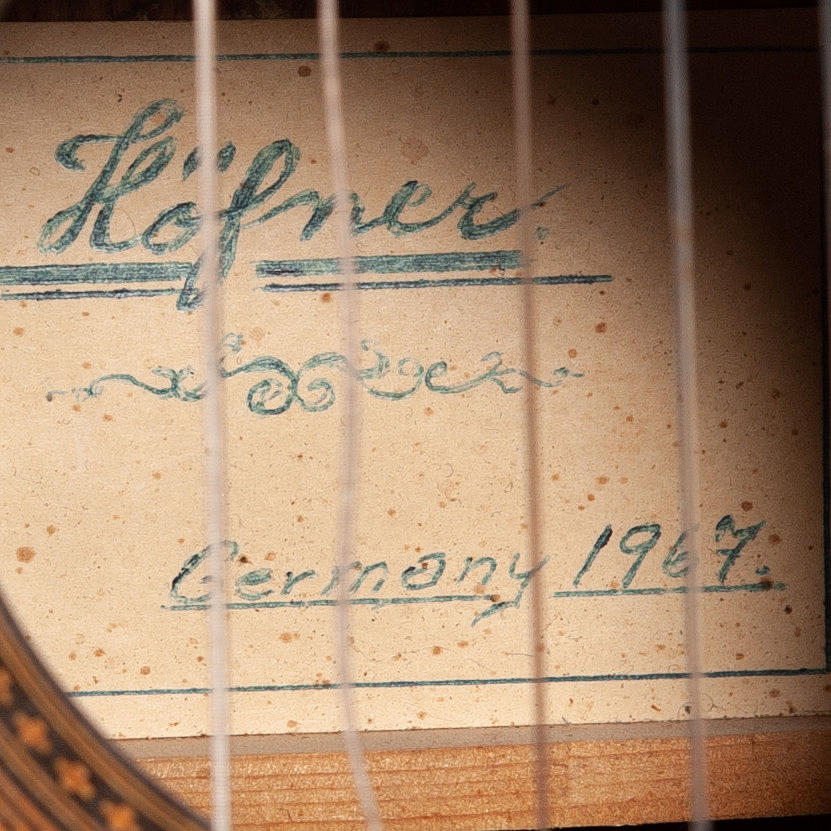 Höfner.
Germany 1967.